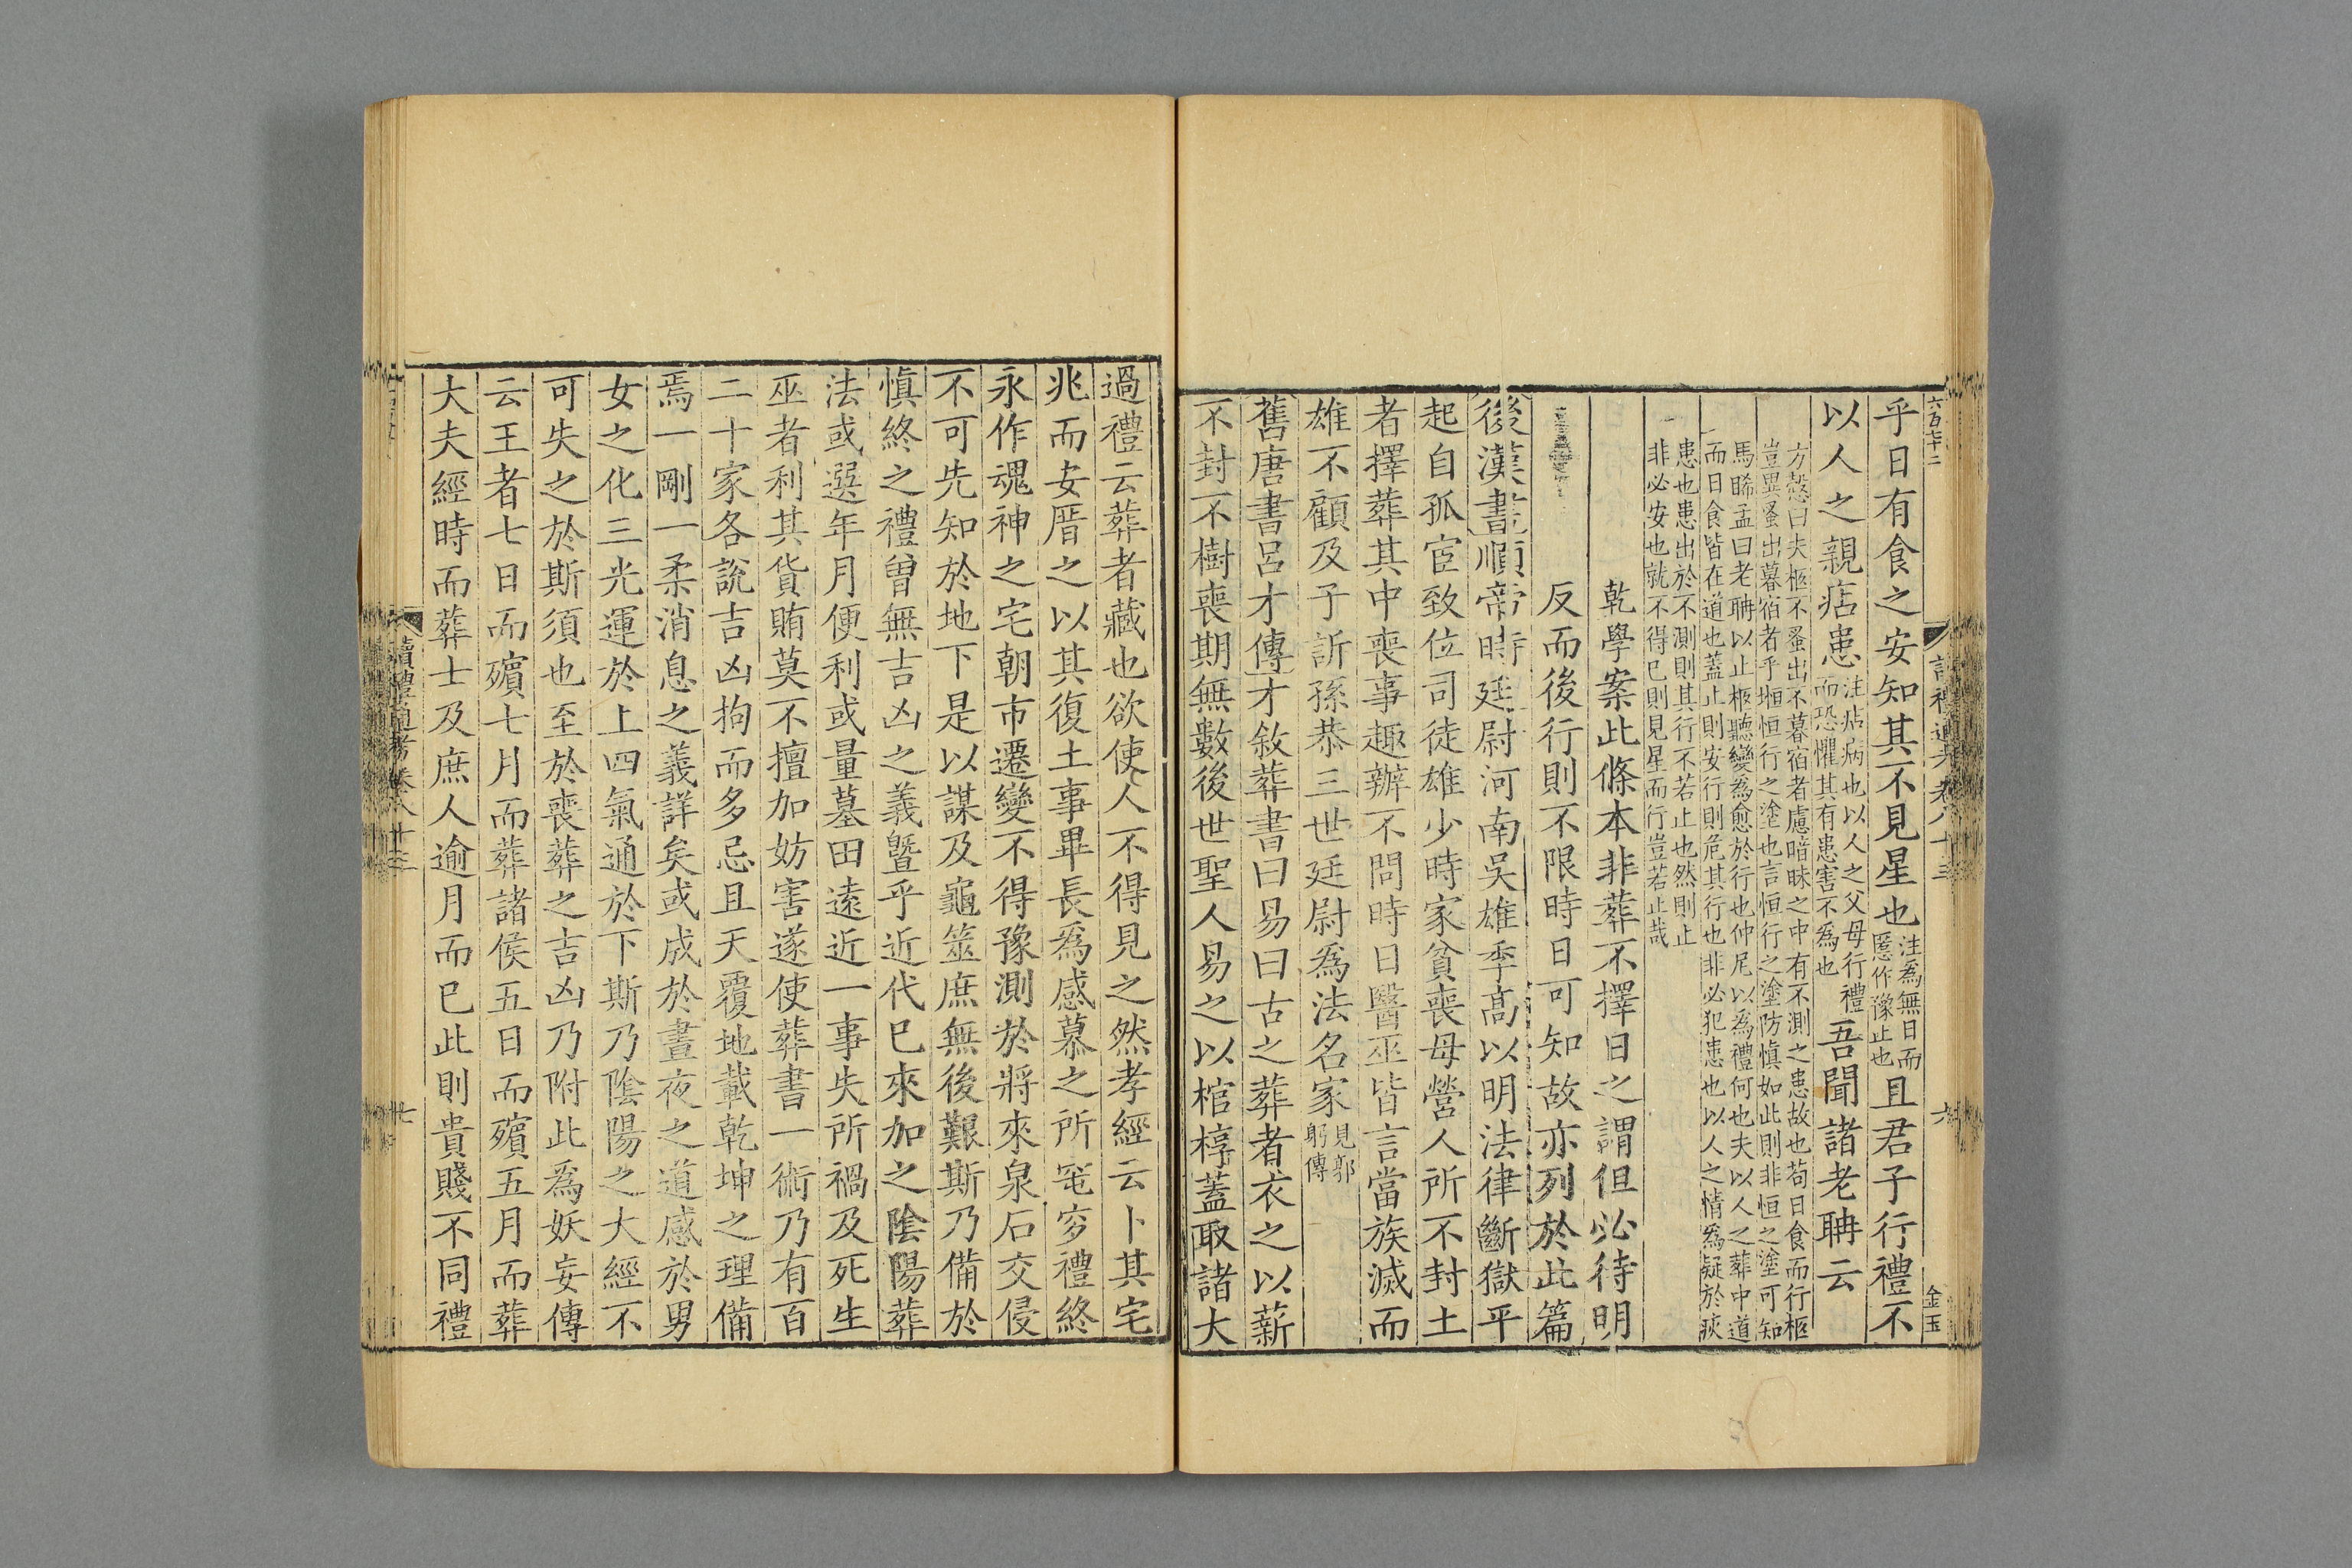 六百七十二
讀禮通考卷八十三
六
金玉
乎日有食之安知其不見星也注為無日而慝作豫止也且君子行禮不
以人之親痁患注痁病也以人之父母行禮而恐懼其有患害不為也吾聞諸老聃云
方慤曰夫柩不蚤出不暮宿者慮暗昧之中有不測之患故也苟日食而行柩
豈異蚤出暮宿者乎堩恒行之塗也言恒行之塗防慎如此則非恒之塗可知
馬晞孟曰老聃以止柩聽變為愈於行也仲尼以為禮何也夫以人之葬中道
而日食皆在道也蓋止則安行則危其行也非必犯患也以人之情為疑於疾
患也患出於不測則其行不若止也然則止
非必安也就不得已則見星而行豈若止哉
乾學案此條本非葬不擇日之謂但必待明
反而後行則不限時日可知故亦列於此篇
後漢書順帝時廷尉河南吳雄季高以明法律斷獄平
起自孤宦致位司徒雄少時家貧喪母營人所不封土
者擇葬其中喪事趣辦不問時日醫巫皆言當族滅而
雄不顧及子訢孫恭三世廷尉為法名家見郭躬傳
舊唐書呂才傳才敘葬書曰易曰古之葬者衣之以薪
不封不樹喪期無數後世聖人易之以棺椁蓋取諸大
過禮云葬者藏也欲使人不得見之然孝經云卜其宅
兆而安厝之以其復土事畢長為感慕之所窀穸禮終
永作魂神之宅朝市遷變不得豫測於將來泉石交侵
不可先知於地下是以謀及龜筮庶無後艱斯乃備於
愼終之禮曾無吉凶之義曁乎近代已來加之陰陽葬
法或選年月便利或量墓田遠近一事失所禍及死生
巫者利其貨賄莫不擅加妨害遂使葬書一術乃有百
二十家各說吉凶拘而多忌且天覆地載乾坤之理備
焉一剛一柔消息之義詳矣或成於晝夜之道感於男
女之化三光運於上四氣通於下斯乃陰陽之大經不
可失之於斯須也至於喪葬之吉凶乃附此為妖妄傳
云王者七日而殯七月而葬諸侯五日而殯五月而葬
大夫經時而葬士及庶人逾月而已此則貴賤不同禮
讀禮通考卷八十三
七